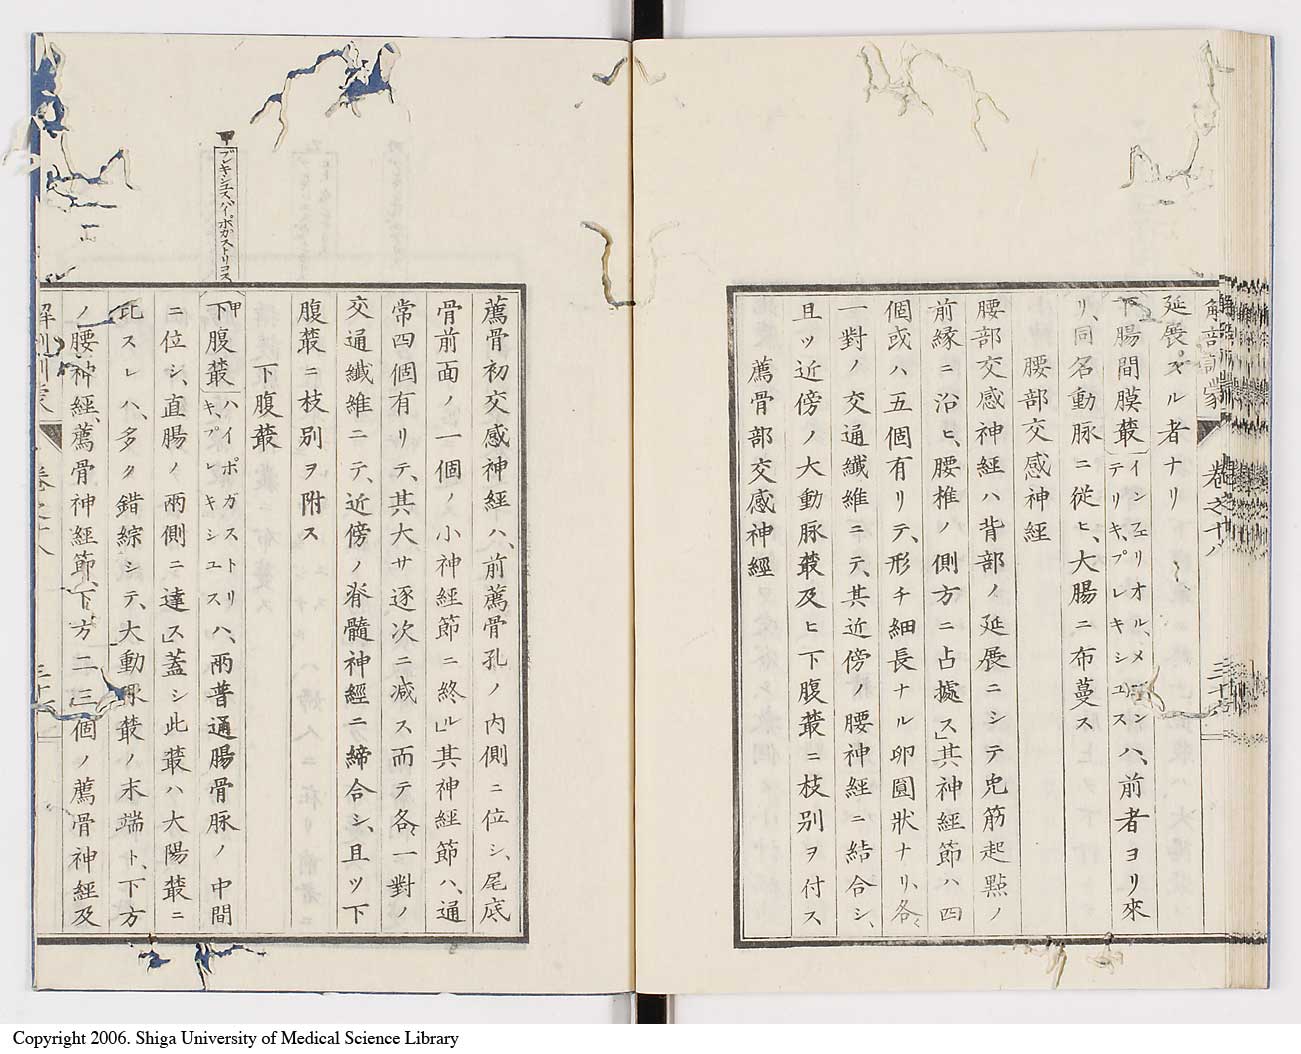 延展スル者ナリ
下腸間膜叢(インフェリオル、メセンテリキ、プレキシユス)ハ、前者ヨリ來
リ、同名動脉ニ從ヒ、大腸ニ布蔓ス
腰部交感神経
腰部交感神経ハ背部ノ延展ニシテ皃筋起點ノ
前縁ニ沿ヒ、腰椎ノ側方ニ占據ス」其神経節ハ四
個或ハ五個有リテ、形チ細長ナル卵圓狀ナリ、各々
一對ノ交通纖維ニテ、其近傍ノ腰神経ニ結合シ、
且ツ近傍ノ大動脉叢及ヒ下腹叢ニ枝別ヲ付ス
薦骨部交感神経
解剖訓蒙 卷之十八
薦骨初交感神経ハ、前薦骨孔ノ内側ニ位シ、尾底
骨前面ノ一個ノ小神経節ニ終ル」其神経節ハ、通
常四個有リテ、其大サ逐次ニ減ス而テ各々一對ノ
交通纖維ニテ、近傍ノ脊髓神経ニ締合シ、且ツ下
腹叢ニ枝別ヲ附ス
下腹叢
甲 プレキシユス、ハイポガストリコス
甲 下腹叢(ハイポガストリキ、プレキシユス)ハ、兩普通腸骨脉ノ中間
ニ位シ、直腸ノ兩側ニ達ス」蓋シ此叢ハ大陽叢ニ
比スレハ、多タ錯綜シテ、大動脉叢ノ末端ト、下方
ノ腰神経、薦骨神経節、下方二三個ノ薦骨神経及
解剖訓蒙 卷之十八